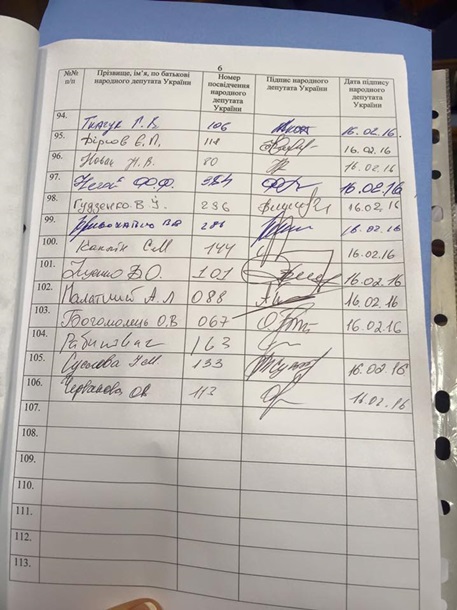 6
№№ п/п Прізвище, ім'я, по батькові народного депутата України Номер посвідчення народного депутата України Підпис народного депутата України Дата підпису народного депутата України
94. Ткачук Г. В. 106 16.02.16.
95. Фірсов Є.П. 118 16.02.16
96. Новак Н.В. 80 16.02.16
97. 16.02.16
98. Гудзенко В.І. 236 16.02.16
99. Кривохатько В.В 286 16.02.16
100. Каплін С.М 144 16.02.16
101. Луценко 101 16.02.16
102. Палатний А.Л 088 16.02.16
103. Богомолець О.В 067 16.02.16
104. 163
105. Суслова І.М 133 16.02.16
106. Черванова О.В 113 16.02.16
107.
108.
109.
110.
111.
112.
113.